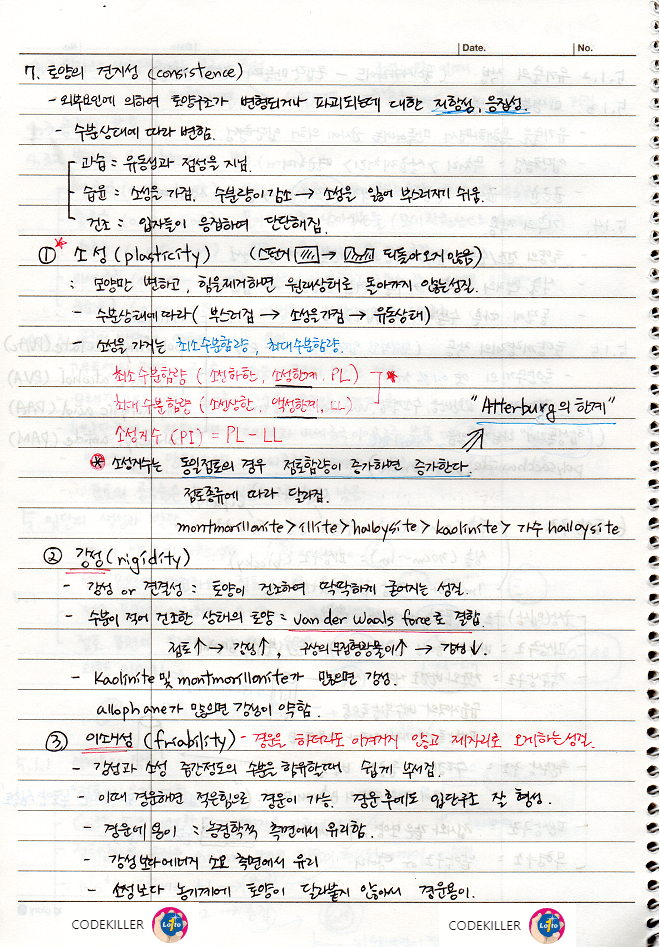 Date.
No.
7. 토양의 견지성 (consistence)
- 외부요인에 의하여 토양구조가 변형되거나 파괴되는데 대한 저항성, 응집성.
- 수분상태에 따라 변함.
과습 : 유동성과 점성을 지님.
습윤 : 소성을 가짐. 수분량이 감소 → 소성을 잃어 부스러지기 쉬움.
건조 : 입자들이 응집하여 단단해짐.
① * 소성 (plasticity) (스펀지 → 되돌아오지 않음)
: 모양만 변하고, 힘을제거하면 원래상태로 돌아가지 않는성질.
- 수분상태에따라 ( 부스러짐 → 소성을가짐 → 유동상태)
- 소성을 가지는 최소수분함량, 최대수분함량.
최소수분함량 (소성하한, 소성한계, PL)
최대수분함량 (소성상한, 액성한계, LL) *
소성지수 (PI) = PL - LL
"Atterburg의 한계"
* 소성지수는 동일점토의 경우 점토함량이 증가하면 증가한다.
점토종류에 따라 달라짐.
montmorillonite > illite > halloysite > kaolinite > 가수 halloysite
② 강성 (rigidity)
- 강성 or 견결성 : 토양이 건조하여 딱딱하게 굳어지는 성질.
- 수분이 적어 건조한 상태의 토양 = van der waals force로 결합.
점토↑ → 강성↑, 구상의 무정형광물이↑ → 강성↓.
- Kaolinite 및 montmorillonite가 많으면 강성.
allophane가 많으면 강성이 약함.
③ 이쇄성 (friability) - 경운을 하더라도 이겨지지 않고 제자리로 오게하는성질.
- 강성과 소성 중간정도의 수분을 함유할때 쉽게 부서짐.
- 이때 경운하면 적은힘으로 경운이 가능. 경운후에도 입단구조 잘 형성.
- 경운에 용이 : 농경학적 측면에서 유리함.
- 강성보다에너지 소요 측면에서 유리
- 소성보다 농기계에 토양이 달라붙지 않아서 경운용이.
CODEKILLER Lotto
CODEKILLER Lotto